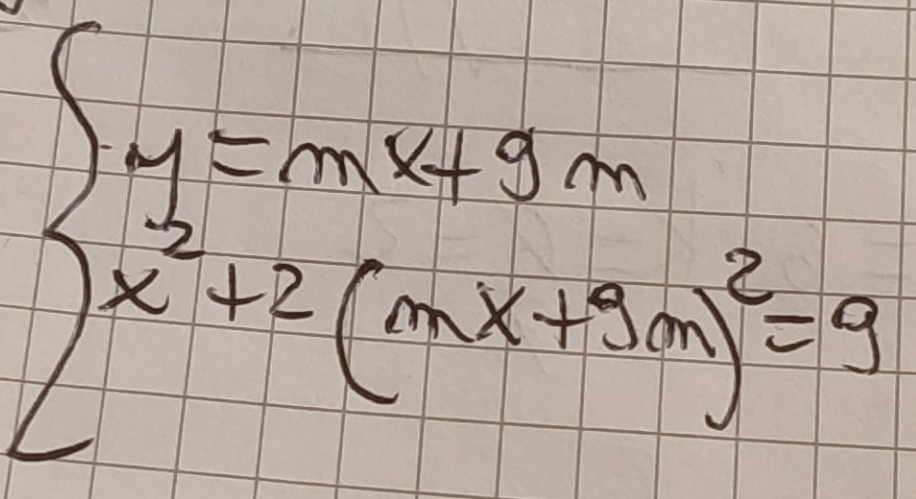 y = mx + 9m
x² + 2(mx + 9m)² = 9